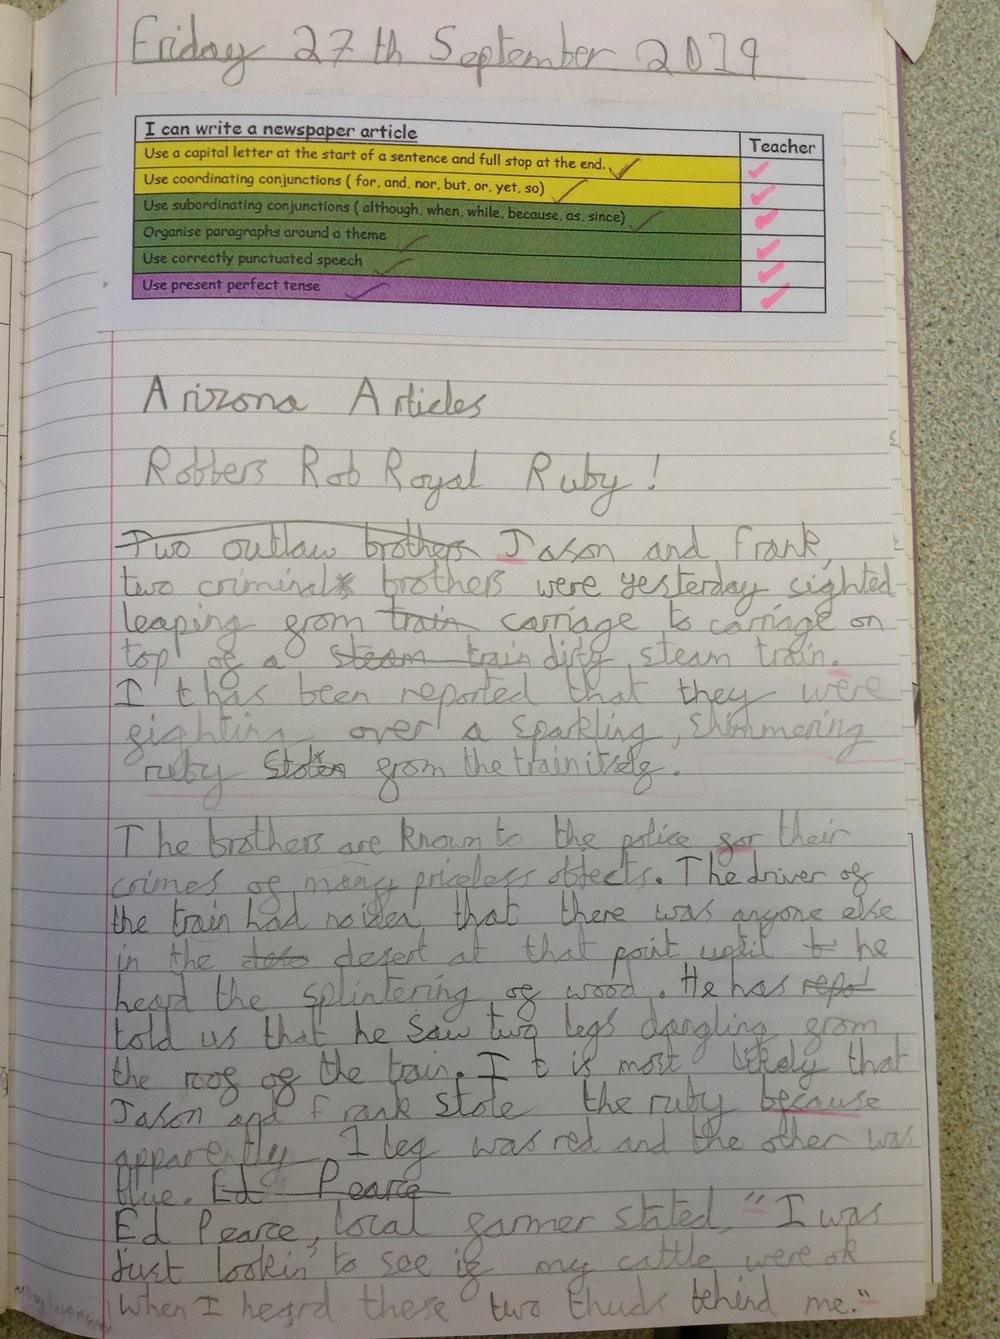 Friday 27th September 2019
I can write a newspaper article
Teacher
Use a capital letter at the start of a sentence and full stop at the end.
Use coordinating conjunctions ( for, and, nor, but, or, yet, so)
Use subordinating conjunctions ( although, when, while, because, as, since)
Organise paragraphs around a theme
Use correctly punctuated speech
Use present perfect tense
Arizona Articles
Robbers Rob Royal Ruby!
Two outlaw brothers Jason and Frank,
two criminals brothers were yesterday sighted
leaping from train carriage to carriage on
top of a steam train dirty, steam train.
It has been reported that they were
fighting over a sparkling, shimmering
ruby stolen from the train itself.
The brothers are known to the police for their
crimes of many priceless objects. The driver of
the train had no idea, that there was anyone else
in the desert at that point until he
heard the splintering of wood. He has repo
told us that he saw two legs dangling from
the roof of the train. It is most likely that
Jason and Frank stole the ruby because
apparently 1 leg was red and the other was
blue. Ed Pearce
Ed Pearce, local farmer stated, "I was
just lookin' to see if my cattle were ok
when I heard these two thuds behind me."